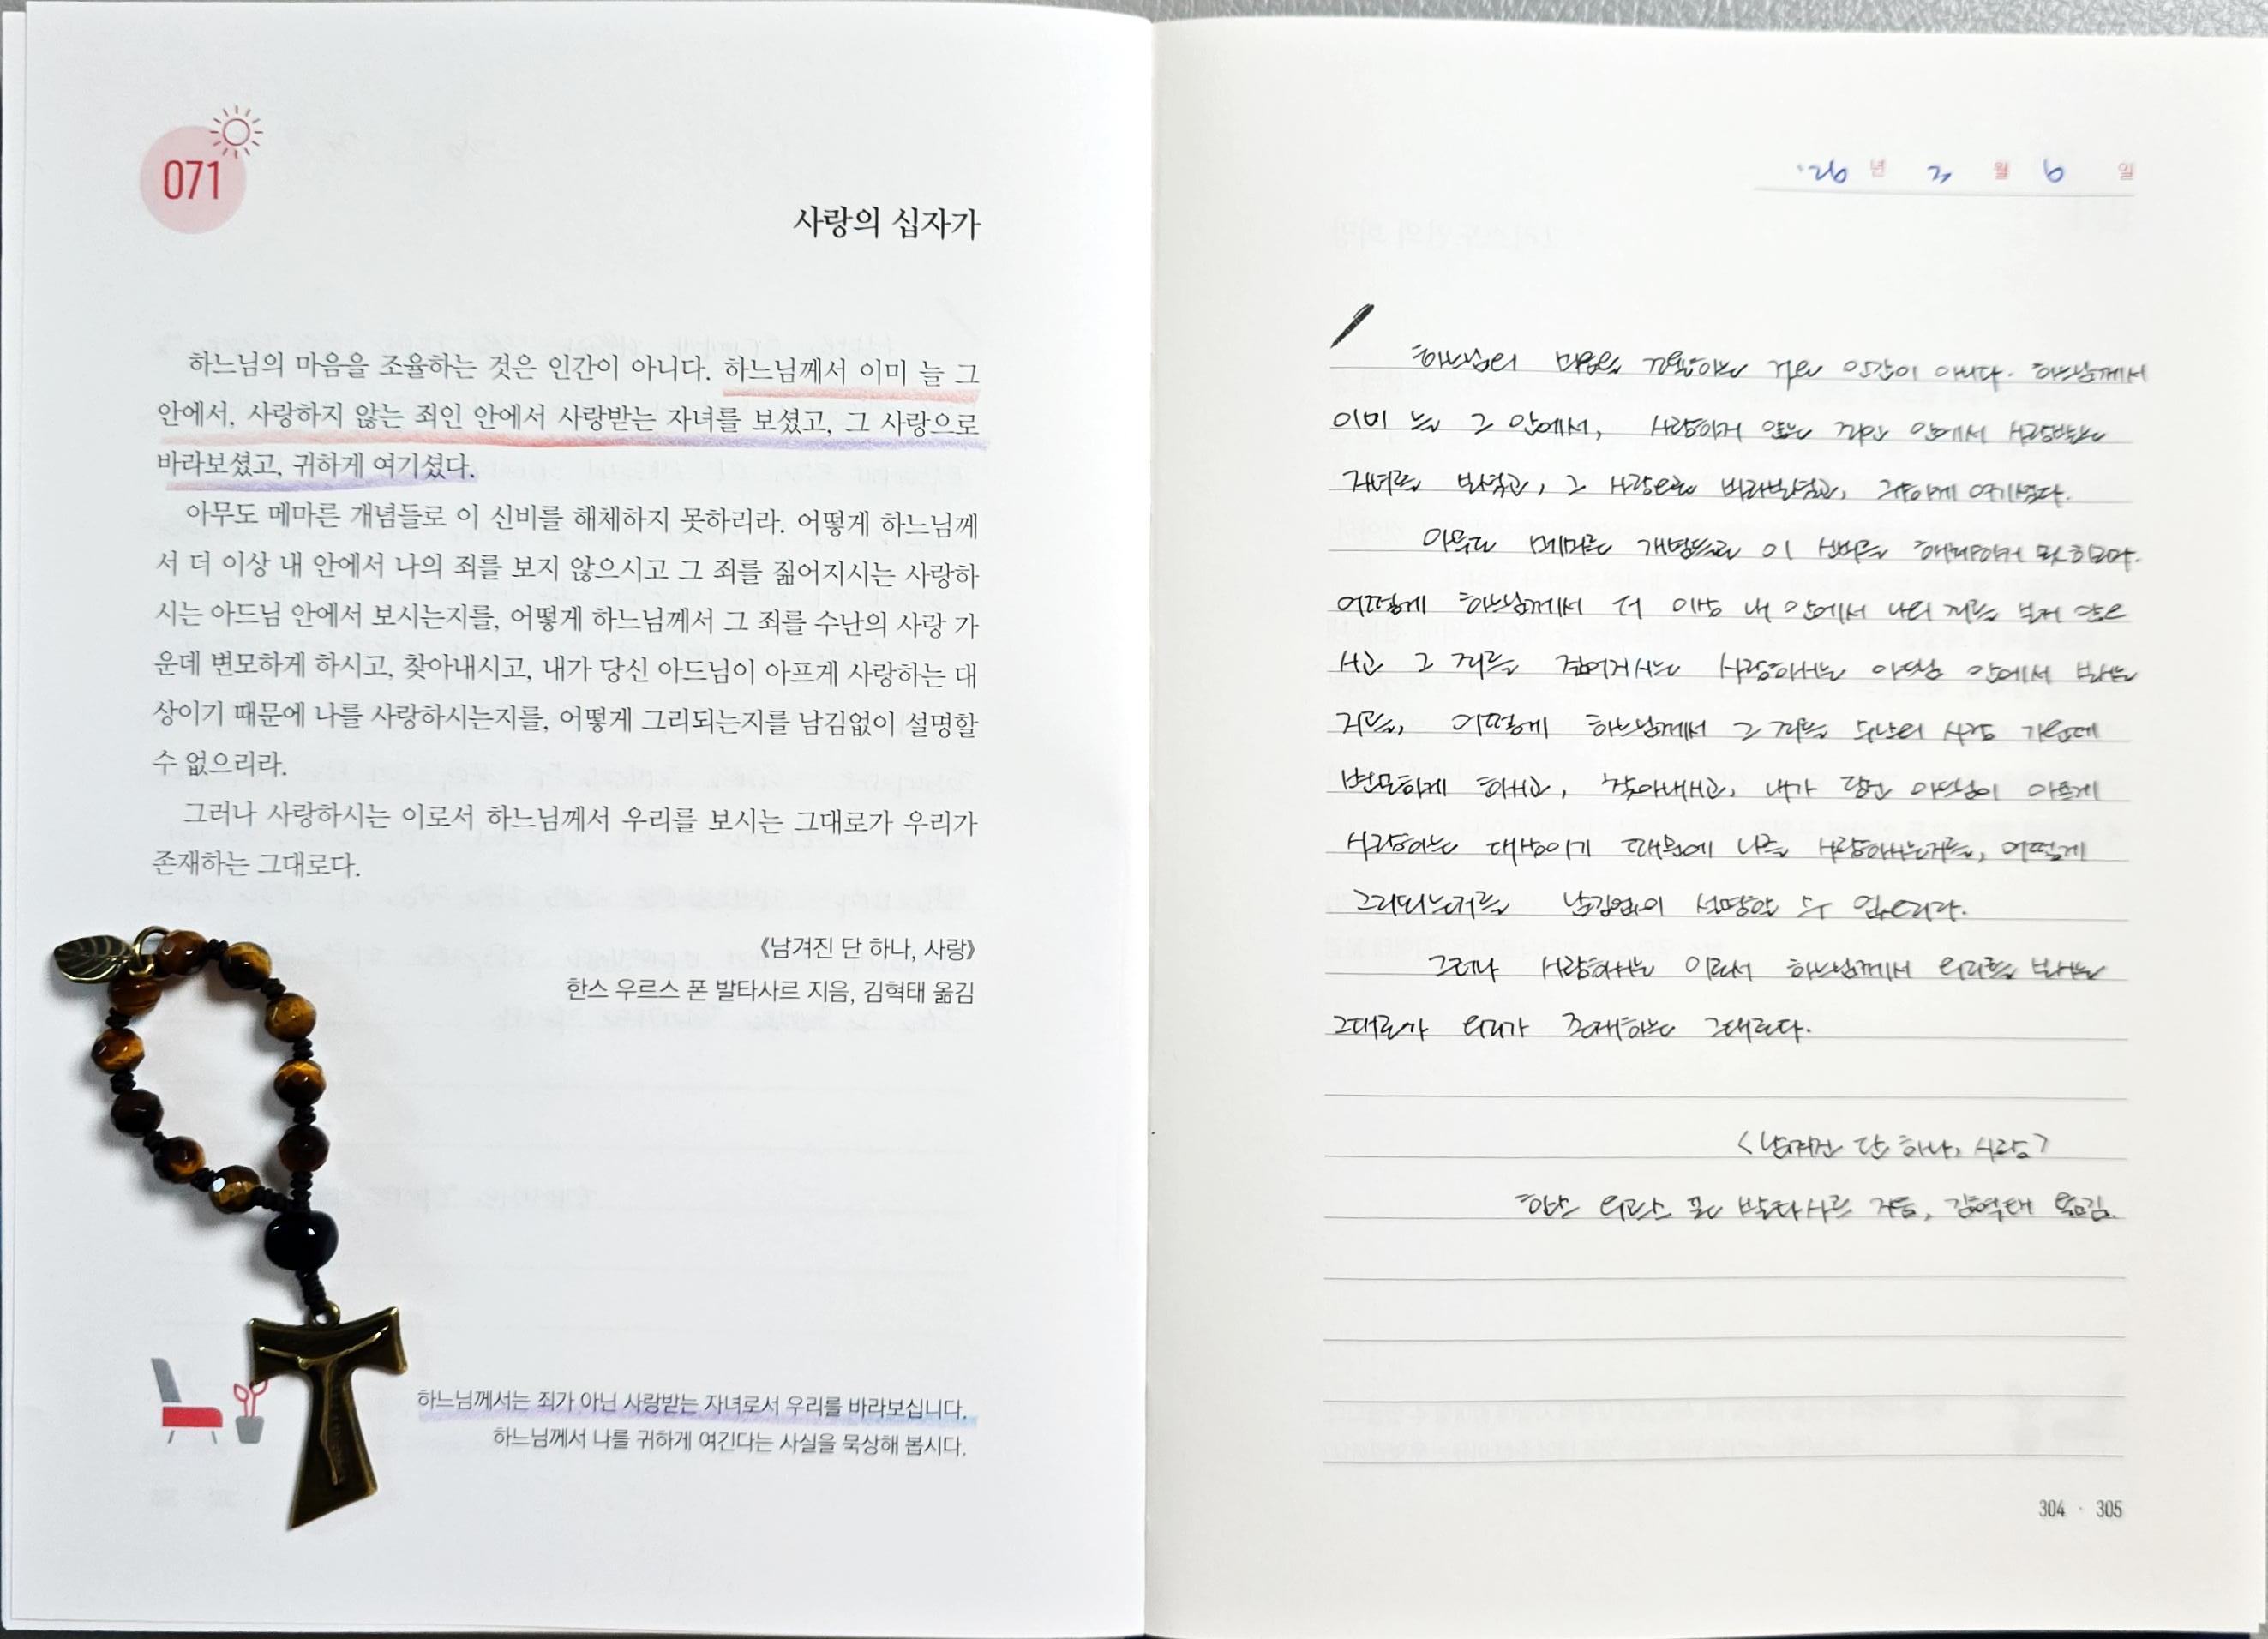 071
사랑의 십자가
하느님의 마음을 조율하는 것은 인간이 아니다. 하느님께서 이미 늘 그
안에서, 사랑하지 않는 죄인 안에서 사랑받는 자녀를 보셨고, 그 사랑으로
바라보셨고, 귀하게 여기셨다.
아무도 메마른 개념들로 이 신비를 해체하지 못하리라. 어떻게 하느님께
서 더 이상 내 안에서 나의 죄를 보지 않으시고 그 죄를 짊어지시는 사랑하
시는 아드님 안에서 보시는지를, 어떻게 하느님께서 그 죄를 수난의 사랑 가
운데 변모하게 하시고, 찾아내시고, 내가 당신 아드님이 아프게 사랑하는 대
상이기 때문에 나를 사랑하시는지를, 어떻게 그리되는지를 남김없이 설명할
수 없으리라.
그러나 사랑하시는 이로서 하느님께서 우리를 보시는 그대로가 우리가
존재하는 그대로다.
《남겨진 단 하나, 사랑》
한스 우르스 폰 발타사르 지음, 김혁태 옮김
하느님께서는 죄가 아닌 사랑받는 자녀로서 우리를 바라보십니다.
하느님께서 나를 귀하게 여긴다는 사실을 묵상해 봅시다.
'26 년 3 월 6 일
하느님의 마음을 조율하는 것은 인간이 아니다. 하느님께서
이미 늘 그 안에서, 사랑하지 않는 죄인 안에서 사랑받는
자녀를 보셨고, 그 사랑으로 바라보셨고, 귀하게 여기셨다.
아무도 메마른 개념들로 이 신비를 해체하지 못하리라.
어떻게 하느님께서 더 이상 내 안에서 나의 죄를 보지 않으
시고 그 죄를 짊어지시는 사랑하시는 아드님 안에서 보시는
지를, 어떻게 하느님께서 그 죄를 수난의 사랑 가운데
변모하게 하시고, 찾아내시고, 내가 당신 아드님이 아프게
사랑하는 대상이기 때문에 나를 사랑하시는지를, 어떻게
그리되는지를 남김없이 설명할 수 없으리라.
그러나 사랑하시는 이로서 하느님께서 우리를 보시는
그대로가 우리가 존재하는 그대로다.
<남겨진 단 하나, 사랑>
한스 우르스 폰 발타사르 지음, 김혁태 옮김.
304 · 305